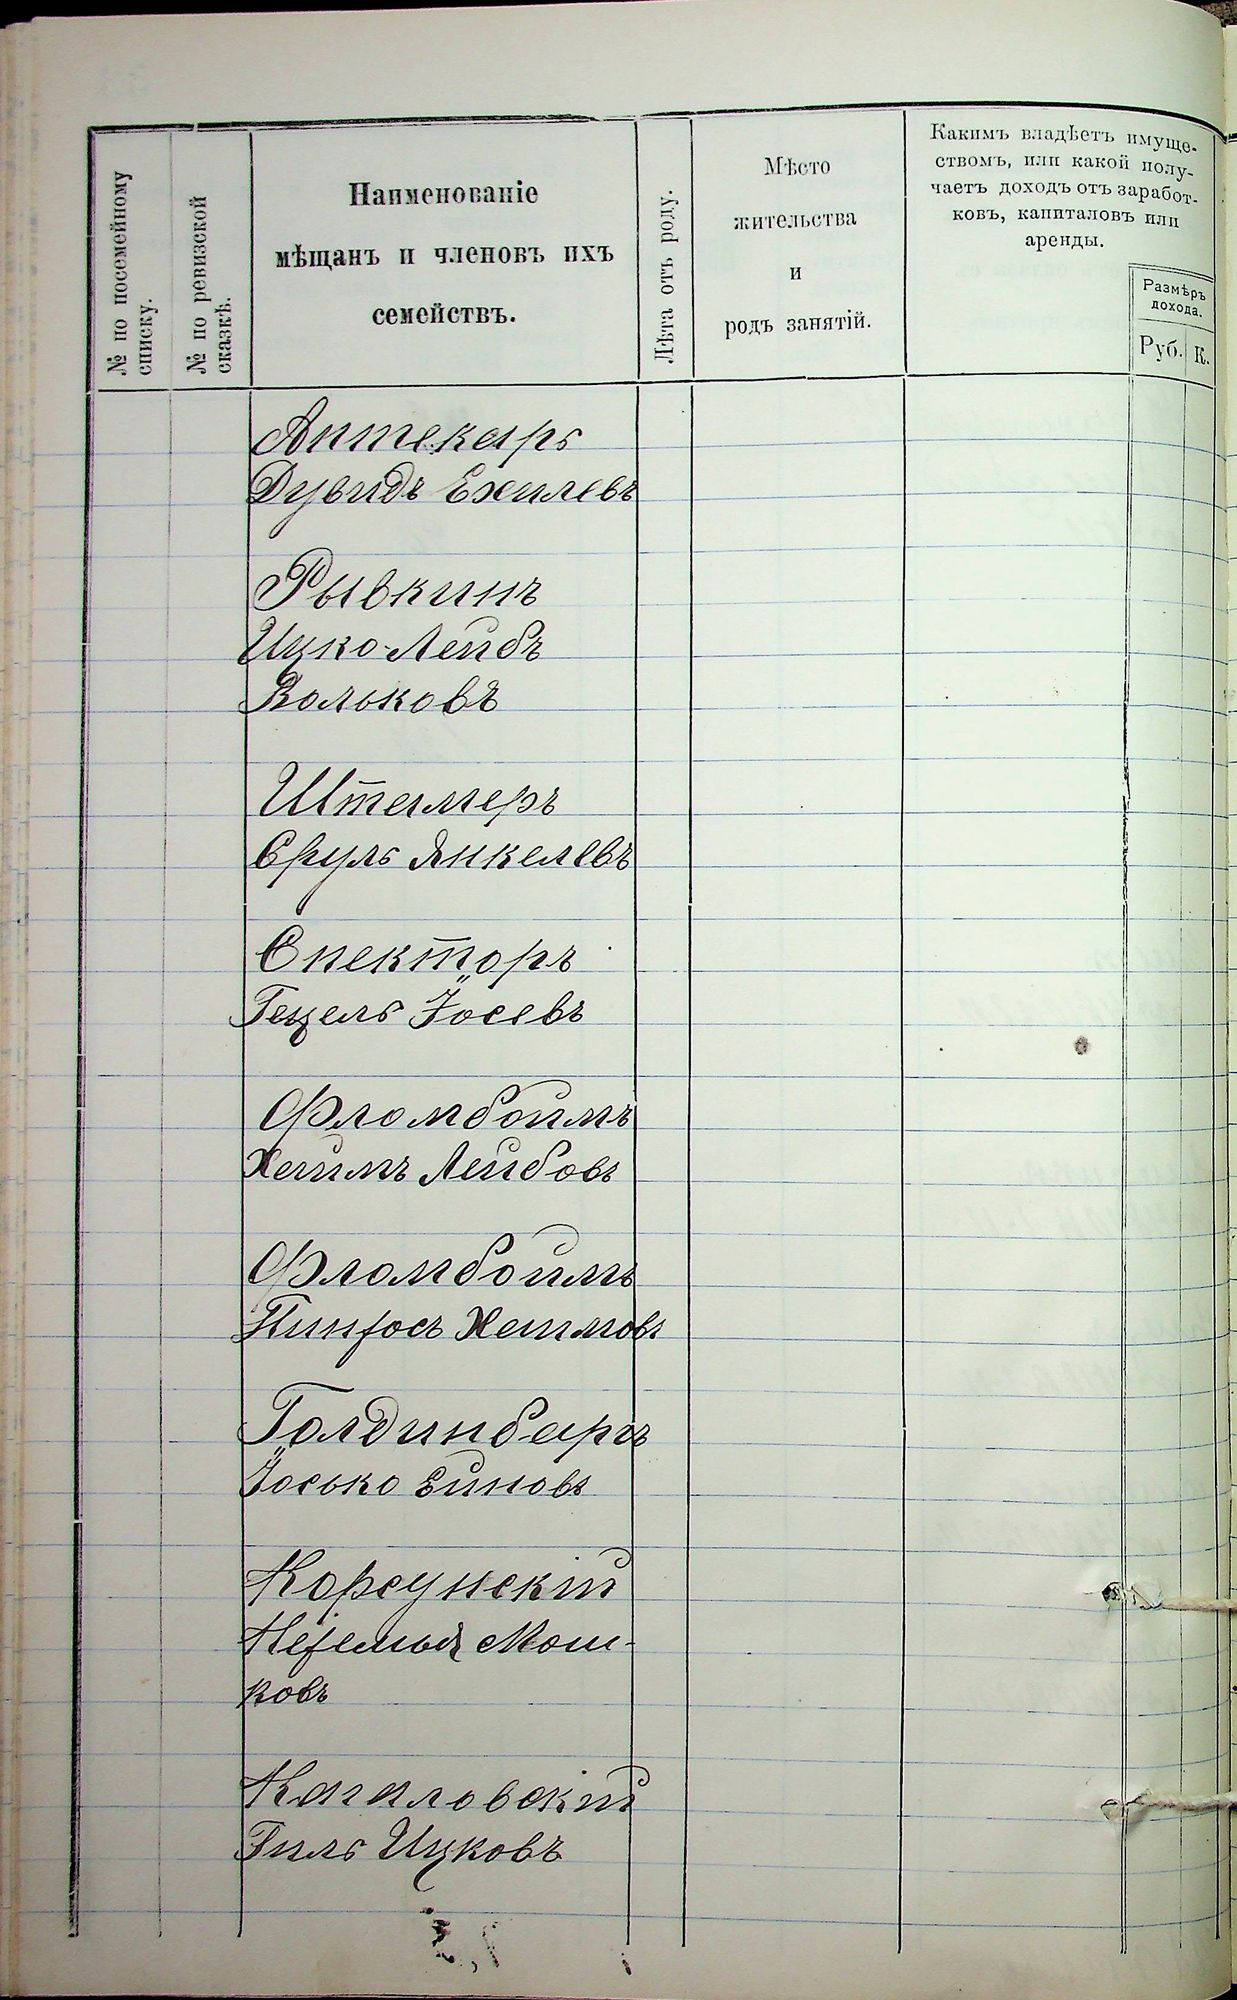 № по посемейному
списку.
№ по ревизской
сказкѣ.
Наименованіе
мѣщанъ и членовъ ихъ
семействъ.
Лѣта отъ роду.
Мѣсто
жительства
и
родъ занятій.
Какимъ владѣетъ имуще-
ствомъ, или какой полу-
чаетъ доходъ отъ заработ-
ковъ, капиталовъ или
аренды.
Размѣръ
дохода.
Руб. К.
Аптекарь
Дувидъ Ехилевъ
Рывкинъ
Ицко-Лейбъ
Вольковъ
Штамеръ
Сруль Янкелевъ
Спекторъ
Гецель Іосевъ
Фломбоймъ
Хаимъ Лейбовъ
Фломбоймъ
Пинхосъ Хаимовъ
Голдинбергъ
Іосько Ейновъ
Корсунскій
Нехемья Мош-
ковъ
Кагаловскій
Гиль Ицковъ